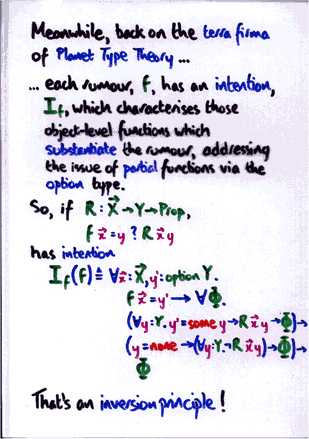 Meanwhile, back on the terra firma
of Planet Type Theory ...
... each rumour, f, has an intention,
I_f, which characterises those
object-level functions which
substantiate the rumour, addressing
the issue of partial functions via the
option type.
So, if R : X⃗ → Y → Prop,
f x⃗ = y ? R x⃗ y
has intention
I_f (F) ≜ ∀x⃗ : X⃗, y' : option Y.
F x⃗ = y' → ∀Φ.
(∀y : Y. y' = some y → R x⃗ y → Φ) →
(y = none → (∀y : Y. ¬ R x⃗ y) → Φ) →
Φ
That's an inversion principle !